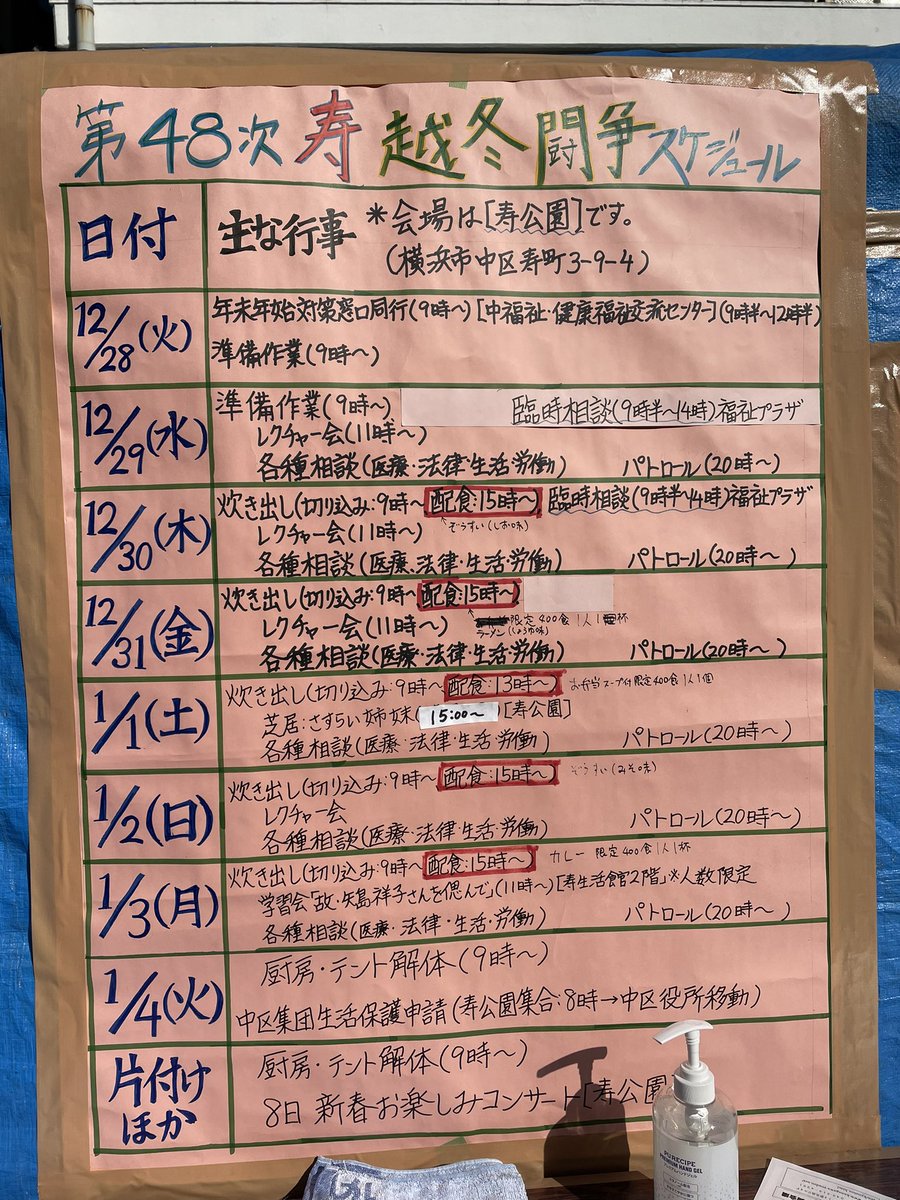 第48次 寿 越冬闘争スケジュール
日付
主な行事 *会場は[寿公園]です。
(横浜市中区寿町3-9-4)
12/28(火)
年末年始対策窓口同行(9時〜)[中福祉・健康福祉交流センター](9時半〜12時半)
準備作業(9時〜)
12/29(水)
準備作業(9時〜) 臨時相談(9時半〜14時)福祉プラザ
レクチャー会(11時〜)
各種相談(医療・法律・生活・労働) パトロール(20時〜)
12/30(木)
炊き出し(切り込み:9時〜 配食:15時〜) 臨時相談(9時半〜14時)福祉プラザ
ぞうすい(しお味)
レクチャー会(11時〜)
各種相談(医療・法律・生活・労働) パトロール(20時〜)
12/31(金)
炊き出し(切り込み:9時〜 配食:15時〜)
限定400食1人1杯
レクチャー会(11時〜) ラーメン(しょうゆ味)
各種相談(医療・法律・生活・労働) パトロール(20時〜)
1/1(土)
炊き出し(切り込み:9時〜 配食:13時〜) お弁当スープ付限定400食1人1個
芝居:さすらい姉妹(15:00〜)[寿公園]
各種相談(医療・法律・生活・労働) パトロール(20時〜)
1/2(日)
炊き出し(切り込み:9時〜 配食:15時〜) ぞうすい(みそ味)
レクチャー会
各種相談(医療・法律・生活・労働) パトロール(20時〜)
1/3(月)
炊き出し(切り込み:9時〜 配食:15時〜) カレー 限定400食1人1杯
学習会「故・矢島祥子さんを偲んで」(11時〜)[寿生活館2階]※人数限定
各種相談(医療・法律・生活・労働) パトロール(20時〜)
1/4(火)
厨房・テント解体(9時〜)
中区集団生活保護申請(寿公園集合:8時→中区役所移動)
片付け
ほか
厨房・テント解体(9時〜)
8日 新春お楽しみコンサート[寿公園
PURECIPE
PREMIUM HAND GEL